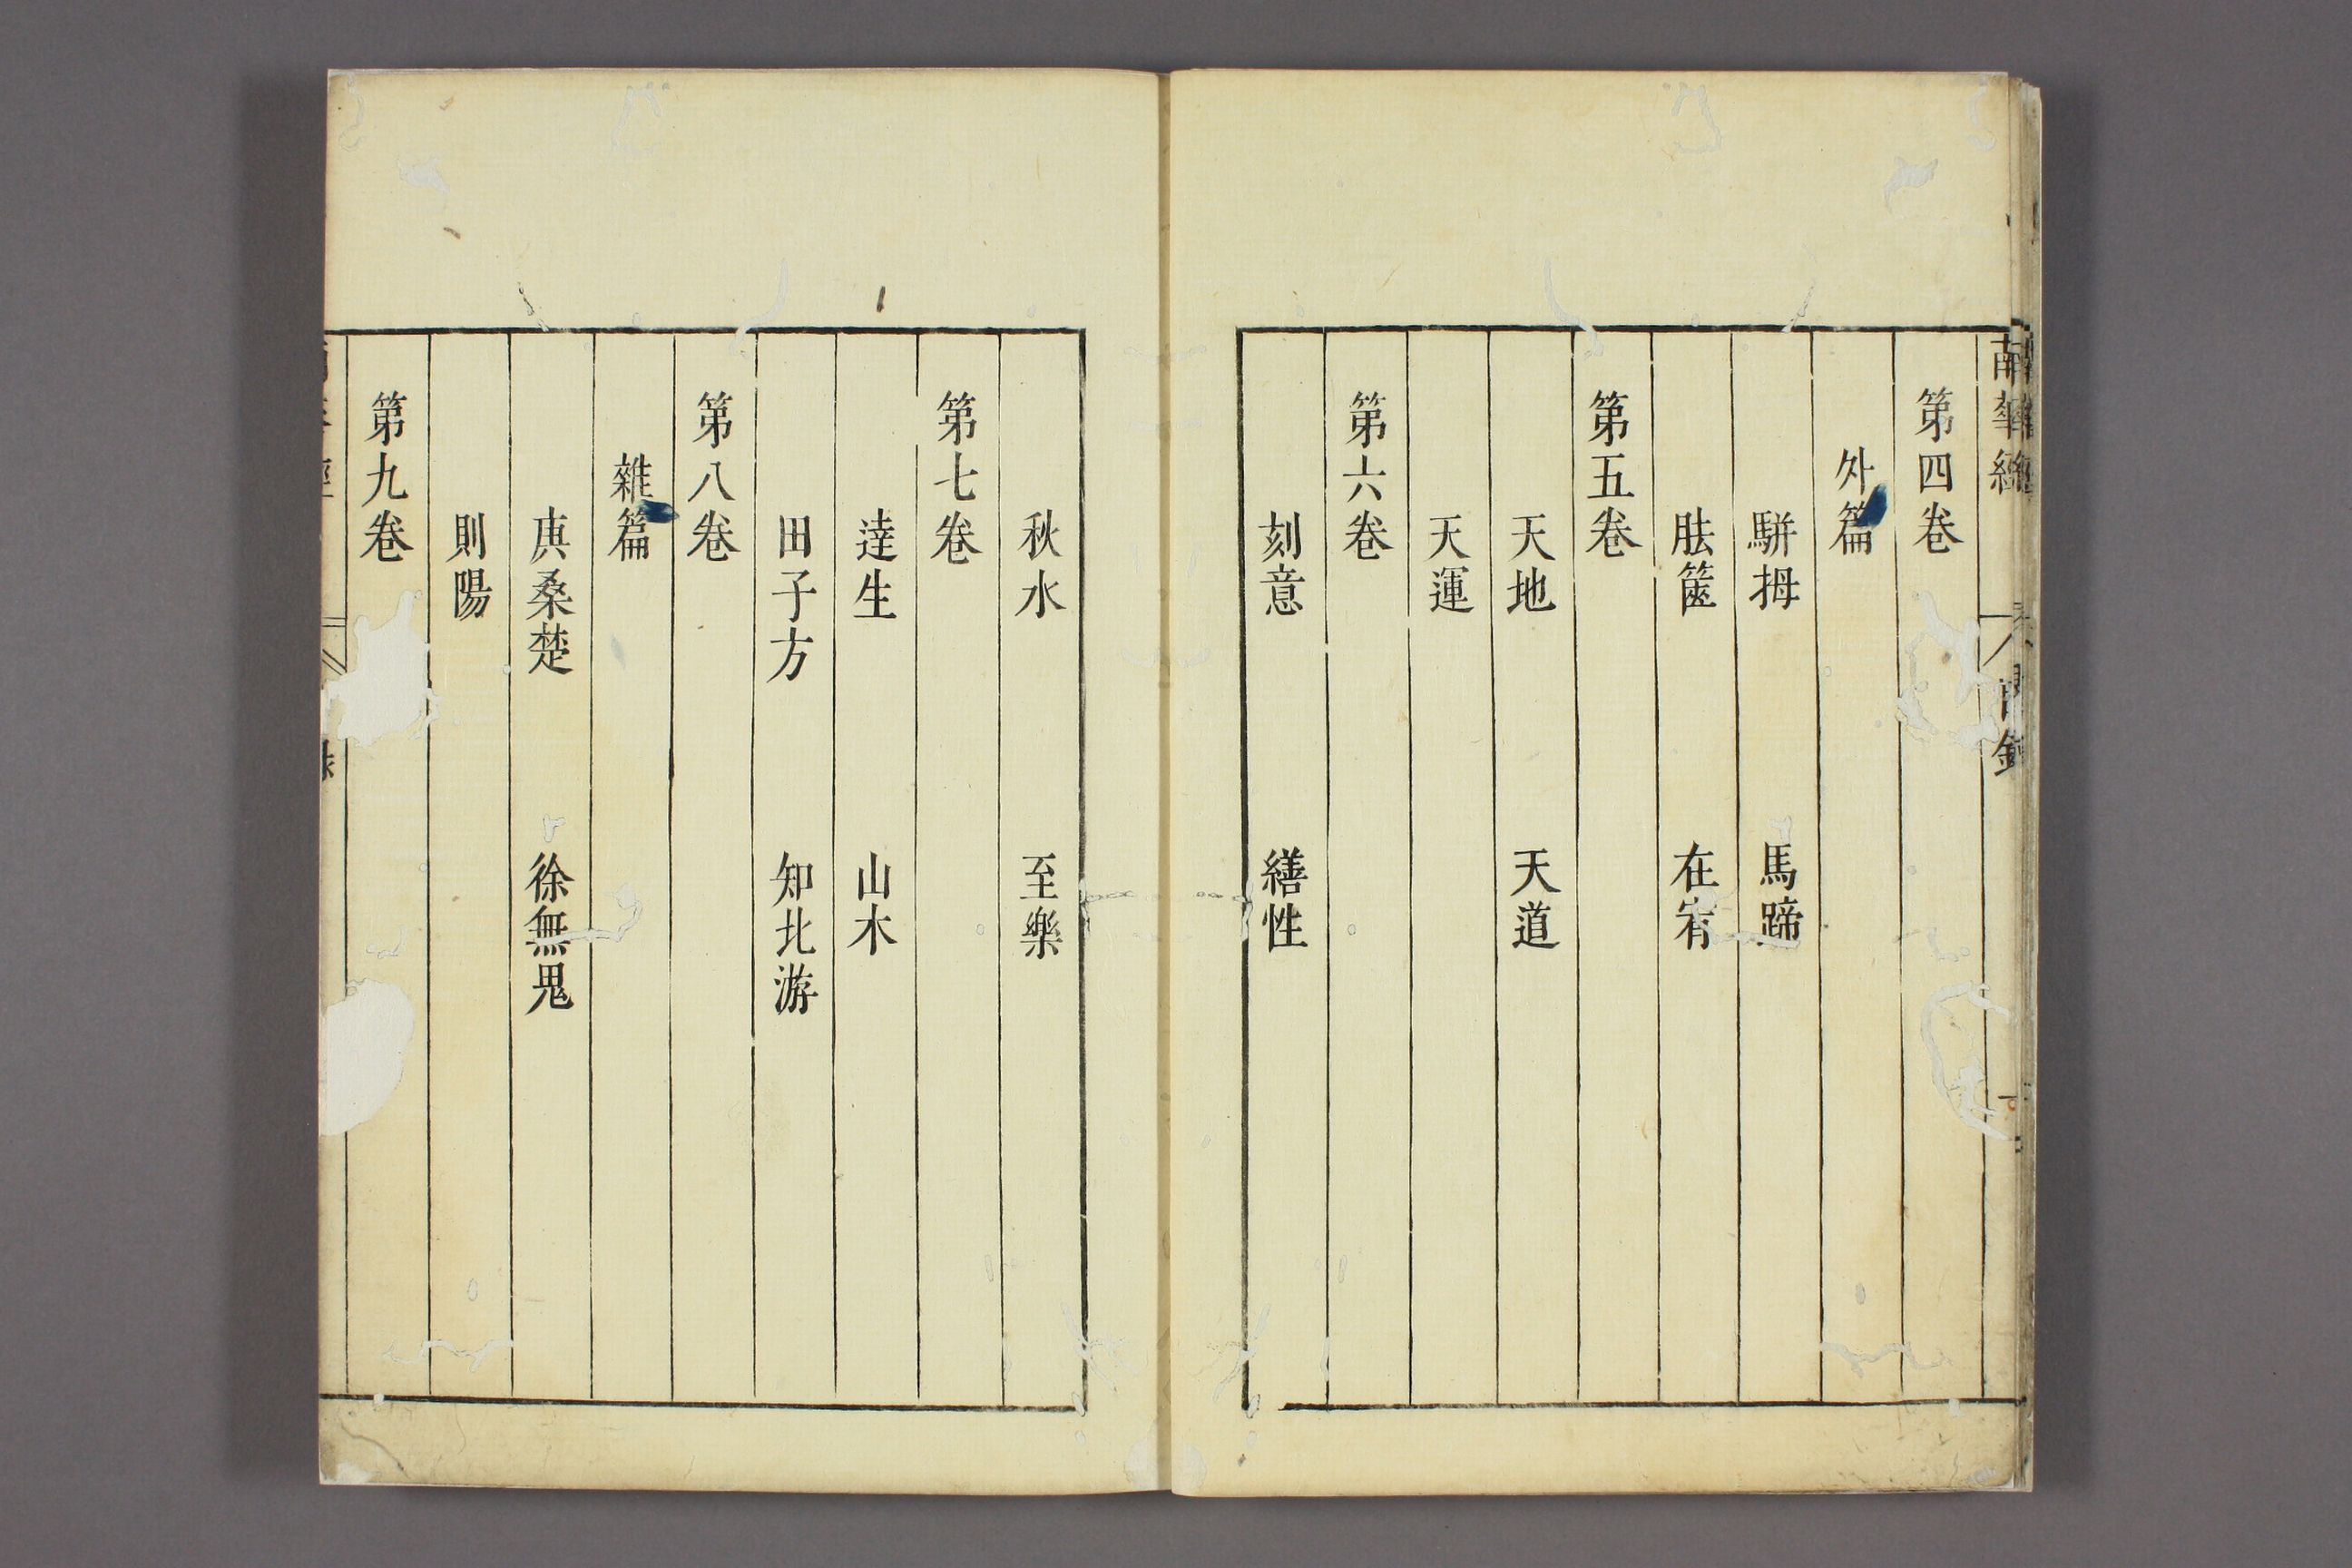 南華經 目錄
第四卷
外篇
駢拇 馬蹄
胠篋 在宥
第五卷
天地 天道
天運
第六卷
刻意 繕性
秋水 至樂
第七卷
達生 山木
田子方 知北游
第八卷
雜篇
庚桑楚 徐無鬼
則陽
第九卷